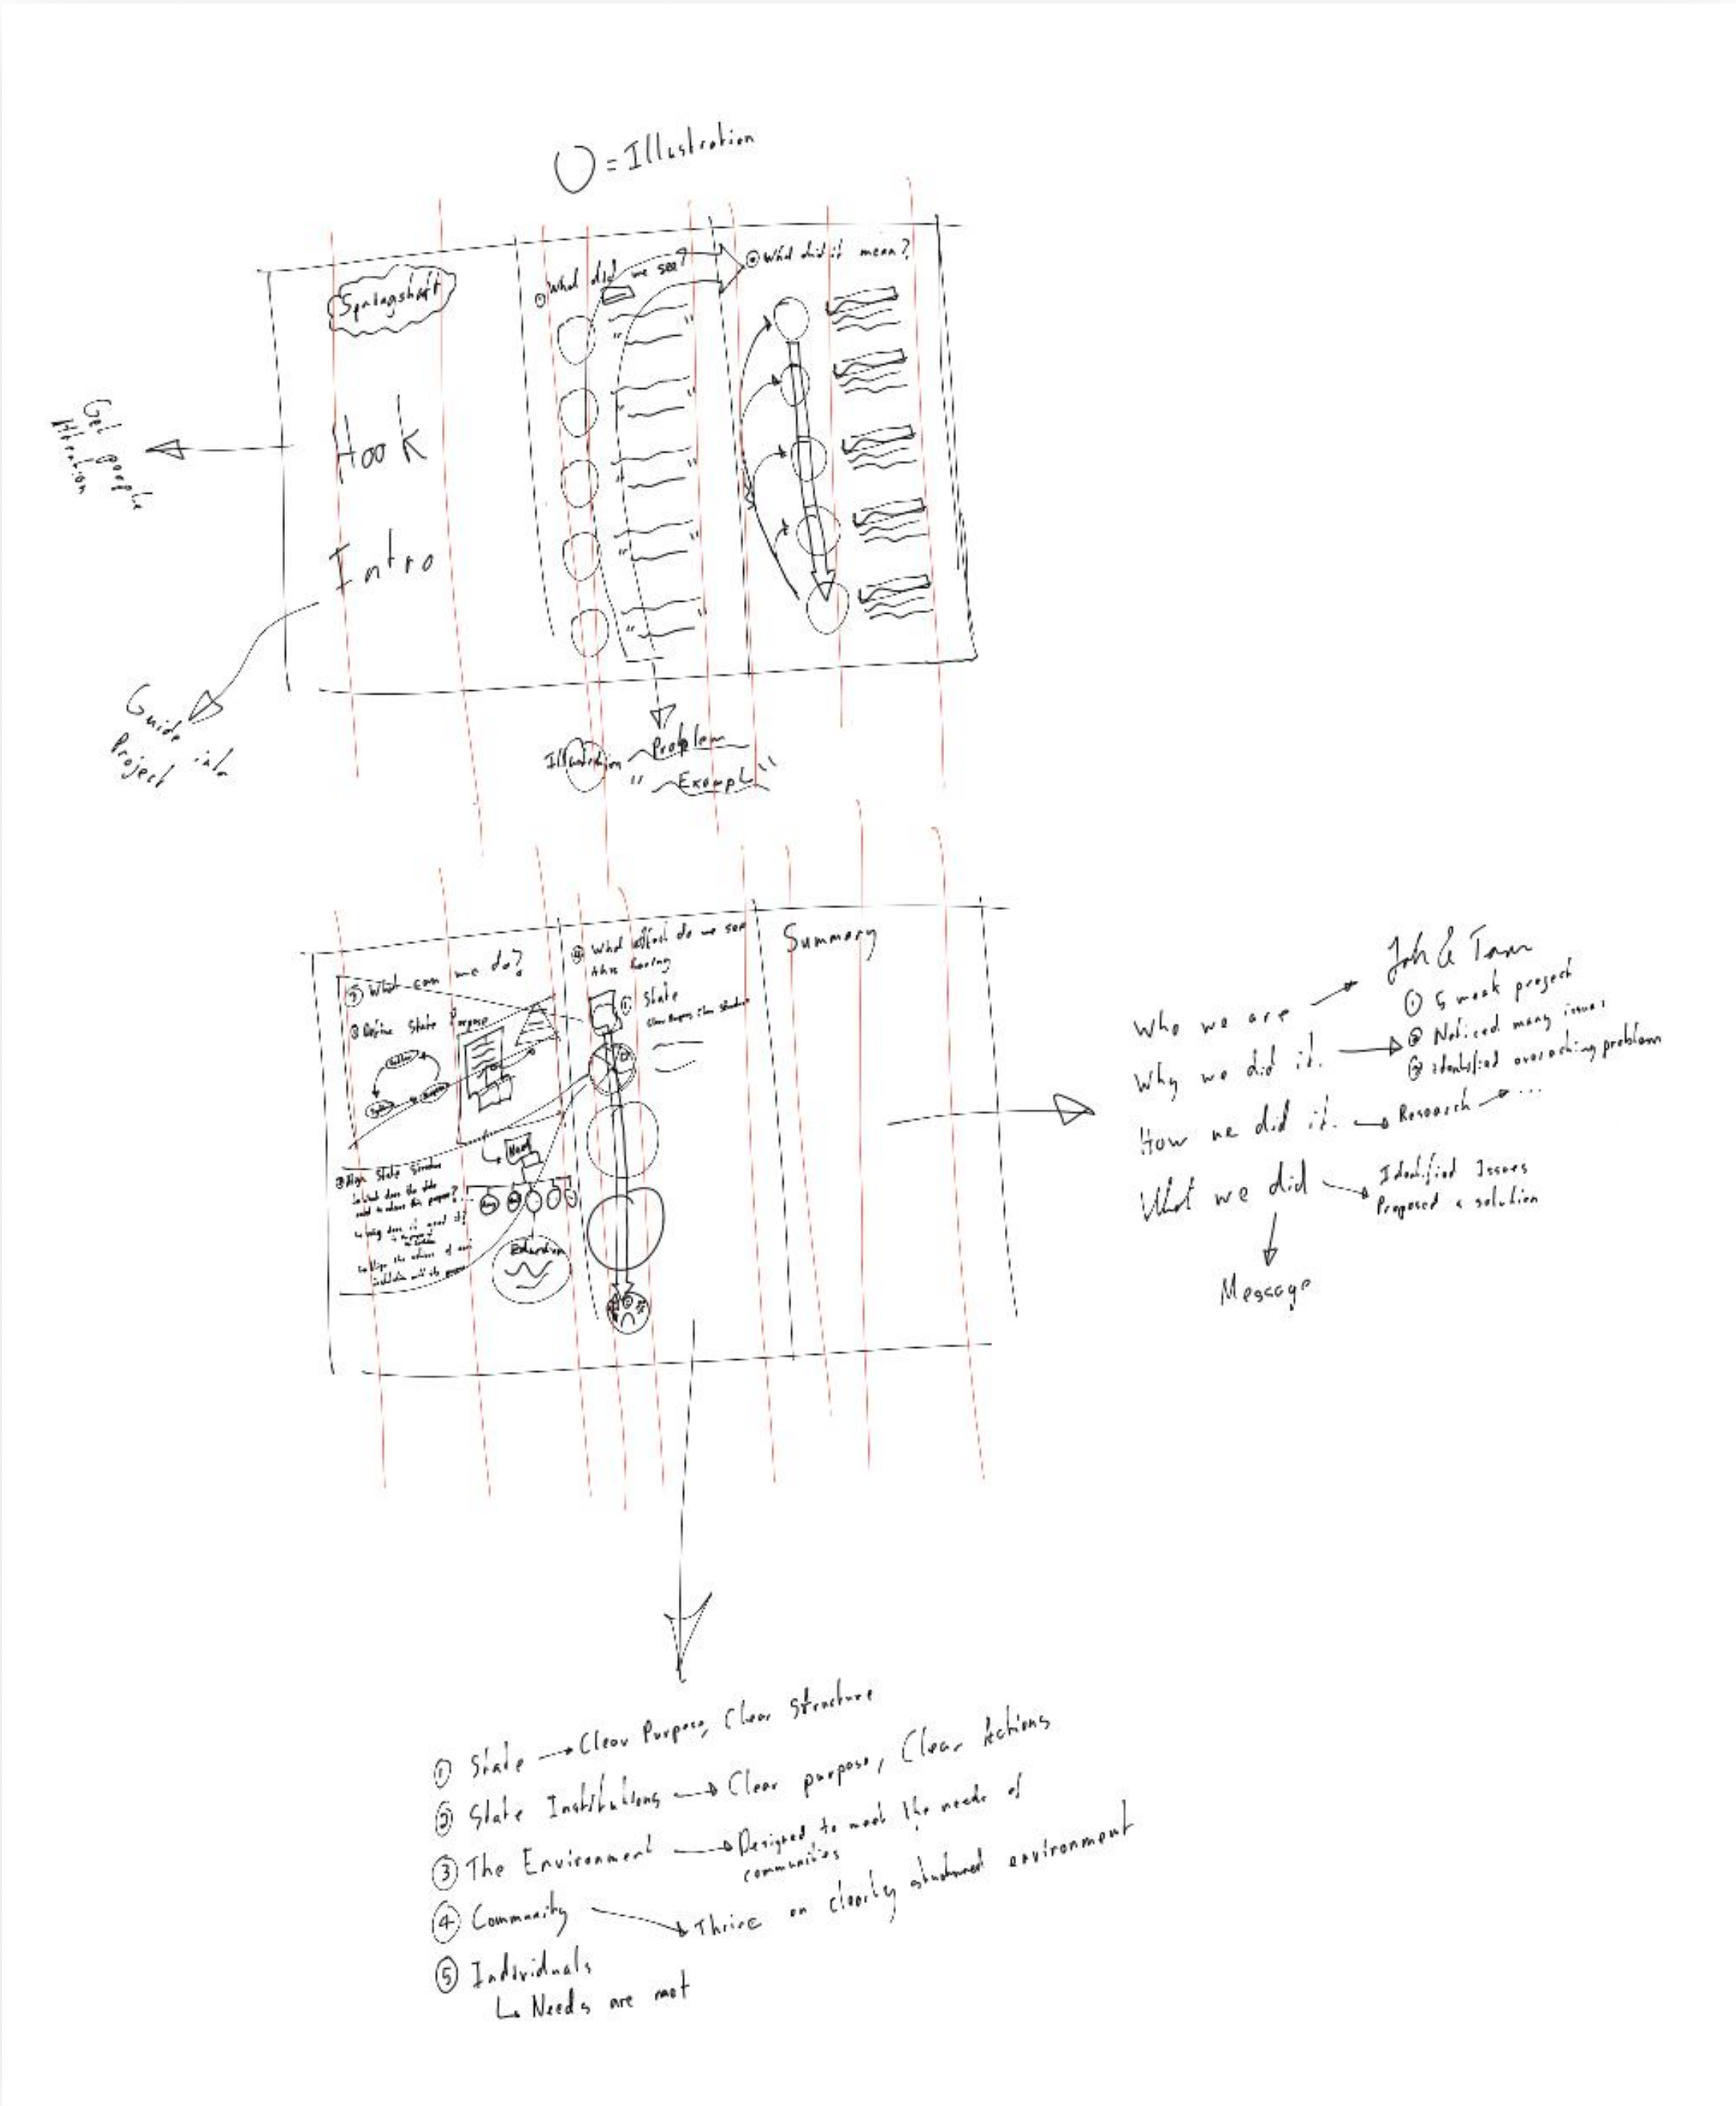 = Illustration
Get people
Attention
Hook
Intro
Guide into
Project
① What did we see?
② What did it mean?
Illustration
Problem
" Example "
③ What can we do?
① Define State Purpose
② Align State Structure
Need
Education
④ What effect do we see
this having
① State
Clear Purpose, Clear Structure
Summary
Who we are
Why we did it.
① 5 week project
② Noticed many issues
③ identified overaching problem
How we did it.
Research ...
What we did
Identified Issues
Proposed a solution
Message
① State → Clear Purpose, Clear Structure
② State Institutions → Clear purpose, Clear Actions
③ The Environment → Designed to meet the needs of
communities
④ Community → Thrive on clearly structured environment
⑤ Individuals
↳ Needs are met